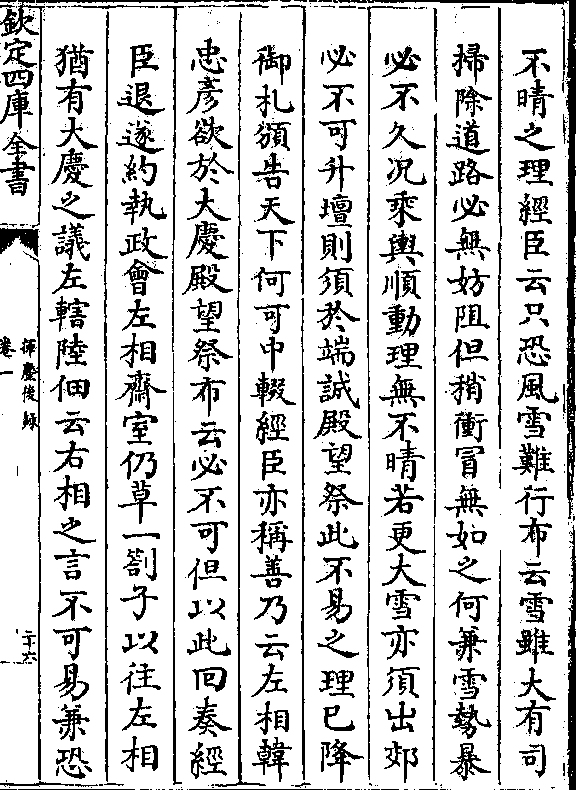 不晴之理經臣云只恐風雪難行布云雪雖大有司
掃除道路必無妨阻但稍衝冒無如之何兼雪勢暴
必不久况乘輿順動理無不晴若更大雪亦須出郊
必不可升壇則須於端誠殿望祭此不易之理已降
御札頒告天下何可中輟經臣亦稱善乃云左相韓
忠彦欲於大慶殿望祭布云必不可但以此回奏經
臣退遂約執政會左相齋室仍草一劄子以往左相
猶有大慶之議左轄陸佃云右相之言不可易兼恐
欽定四庫全書
揮麈後錄
卷一
二十六